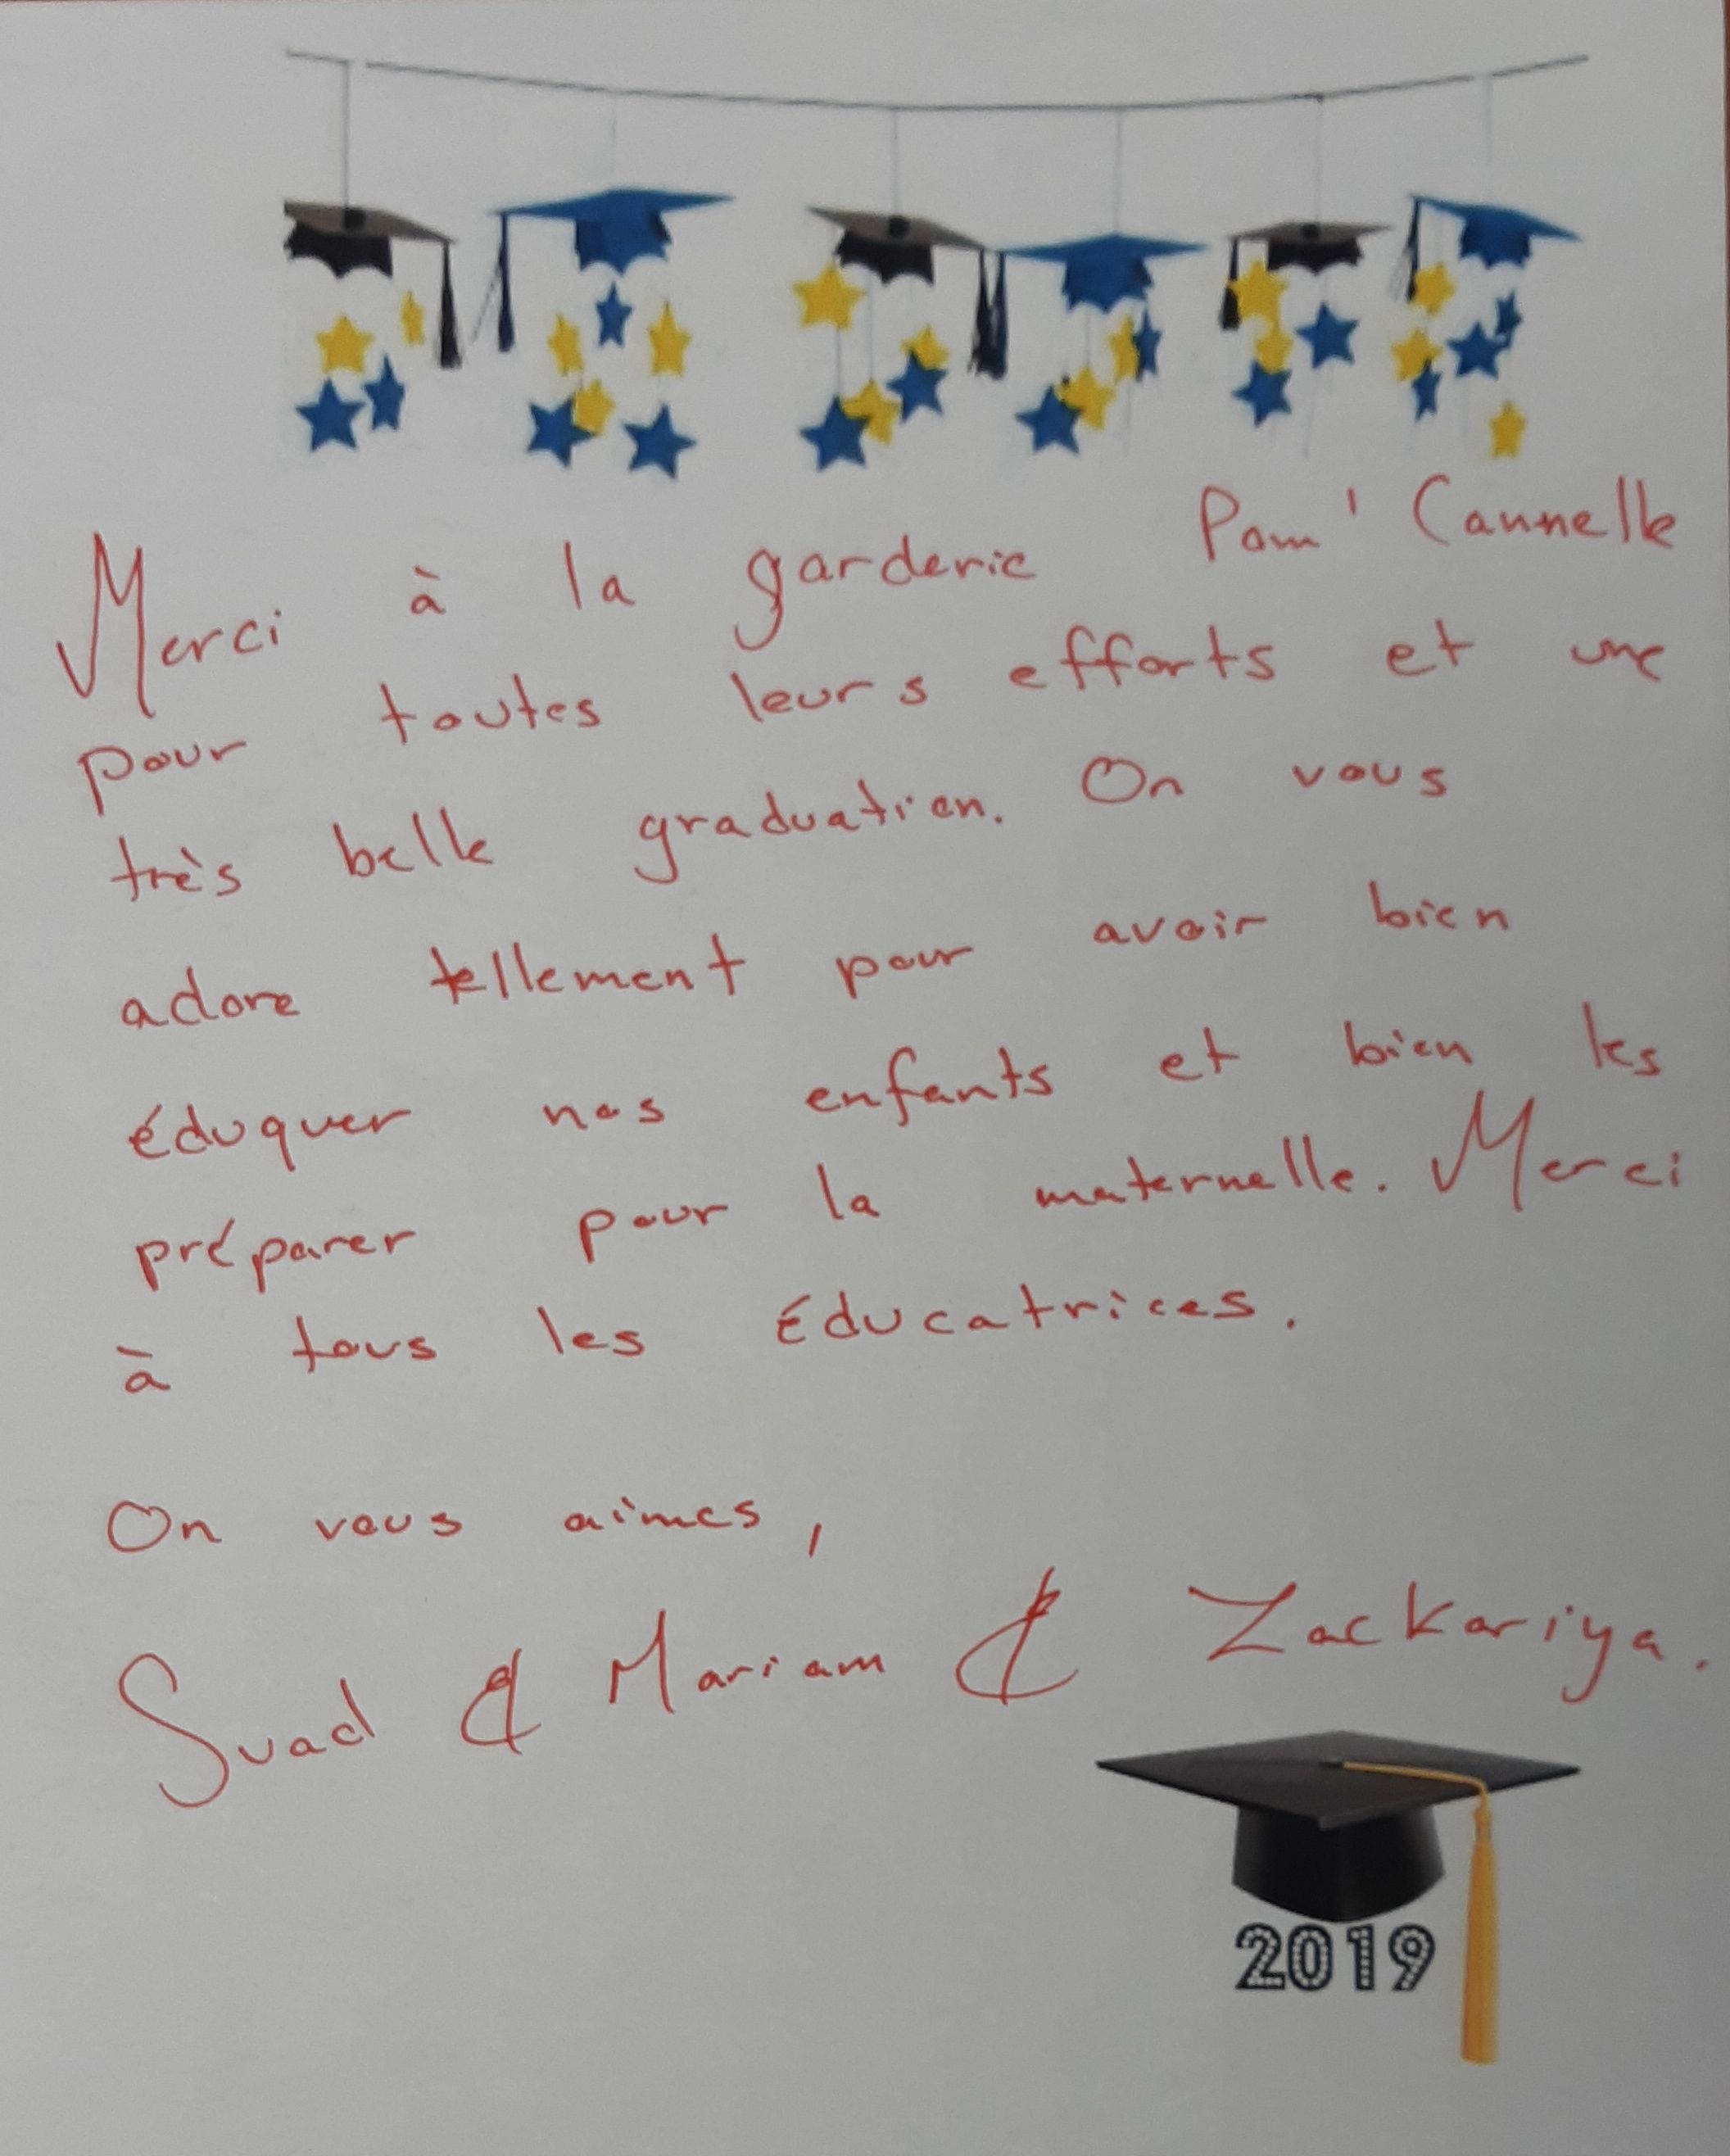 Merci à la garderie Pom' Cannelle
pour toutes leurs efforts et une
très belle graduation. On vous
adore tellement pour avoir bien
éduquer nos enfants et bien les
préparer pour la maternelle. Merci
à tous les éducatrices.
On vous aimes,
Suad & Mariam & Zackariya.
2019